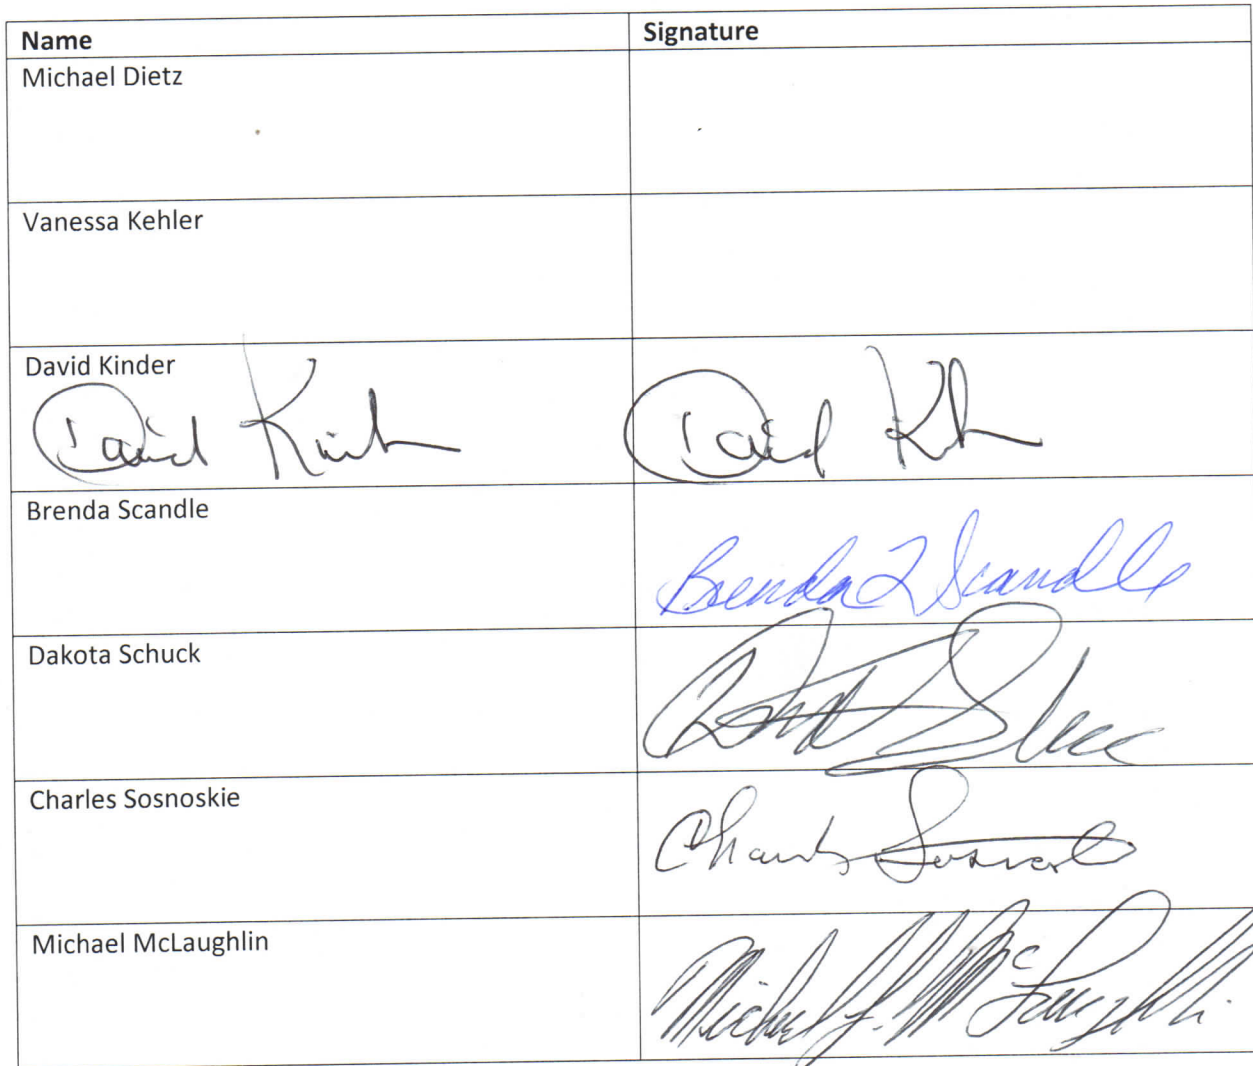 Name Signature
Michael Dietz
Vanessa Kehler
David Kinder
David Kinder David Kinder
Brenda Scandle
Brenda L Scandle
Dakota Schuck
Charles Sosnoskie
Charles Sosnoskie
Michael McLaughlin
Michael J. McLaughlin